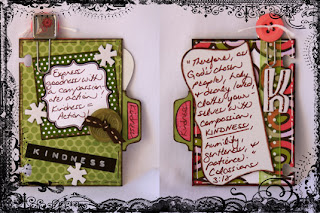 Express
goodness with
compassion,
Kindness =
Action.
KINDNESS
"Therefore, as
God's chosen
people, holy
& dearly loved,
clothe your
selves with
compassion,
KINDNESS,
humility,
gentleness, &
patience."
Colossians
3:12